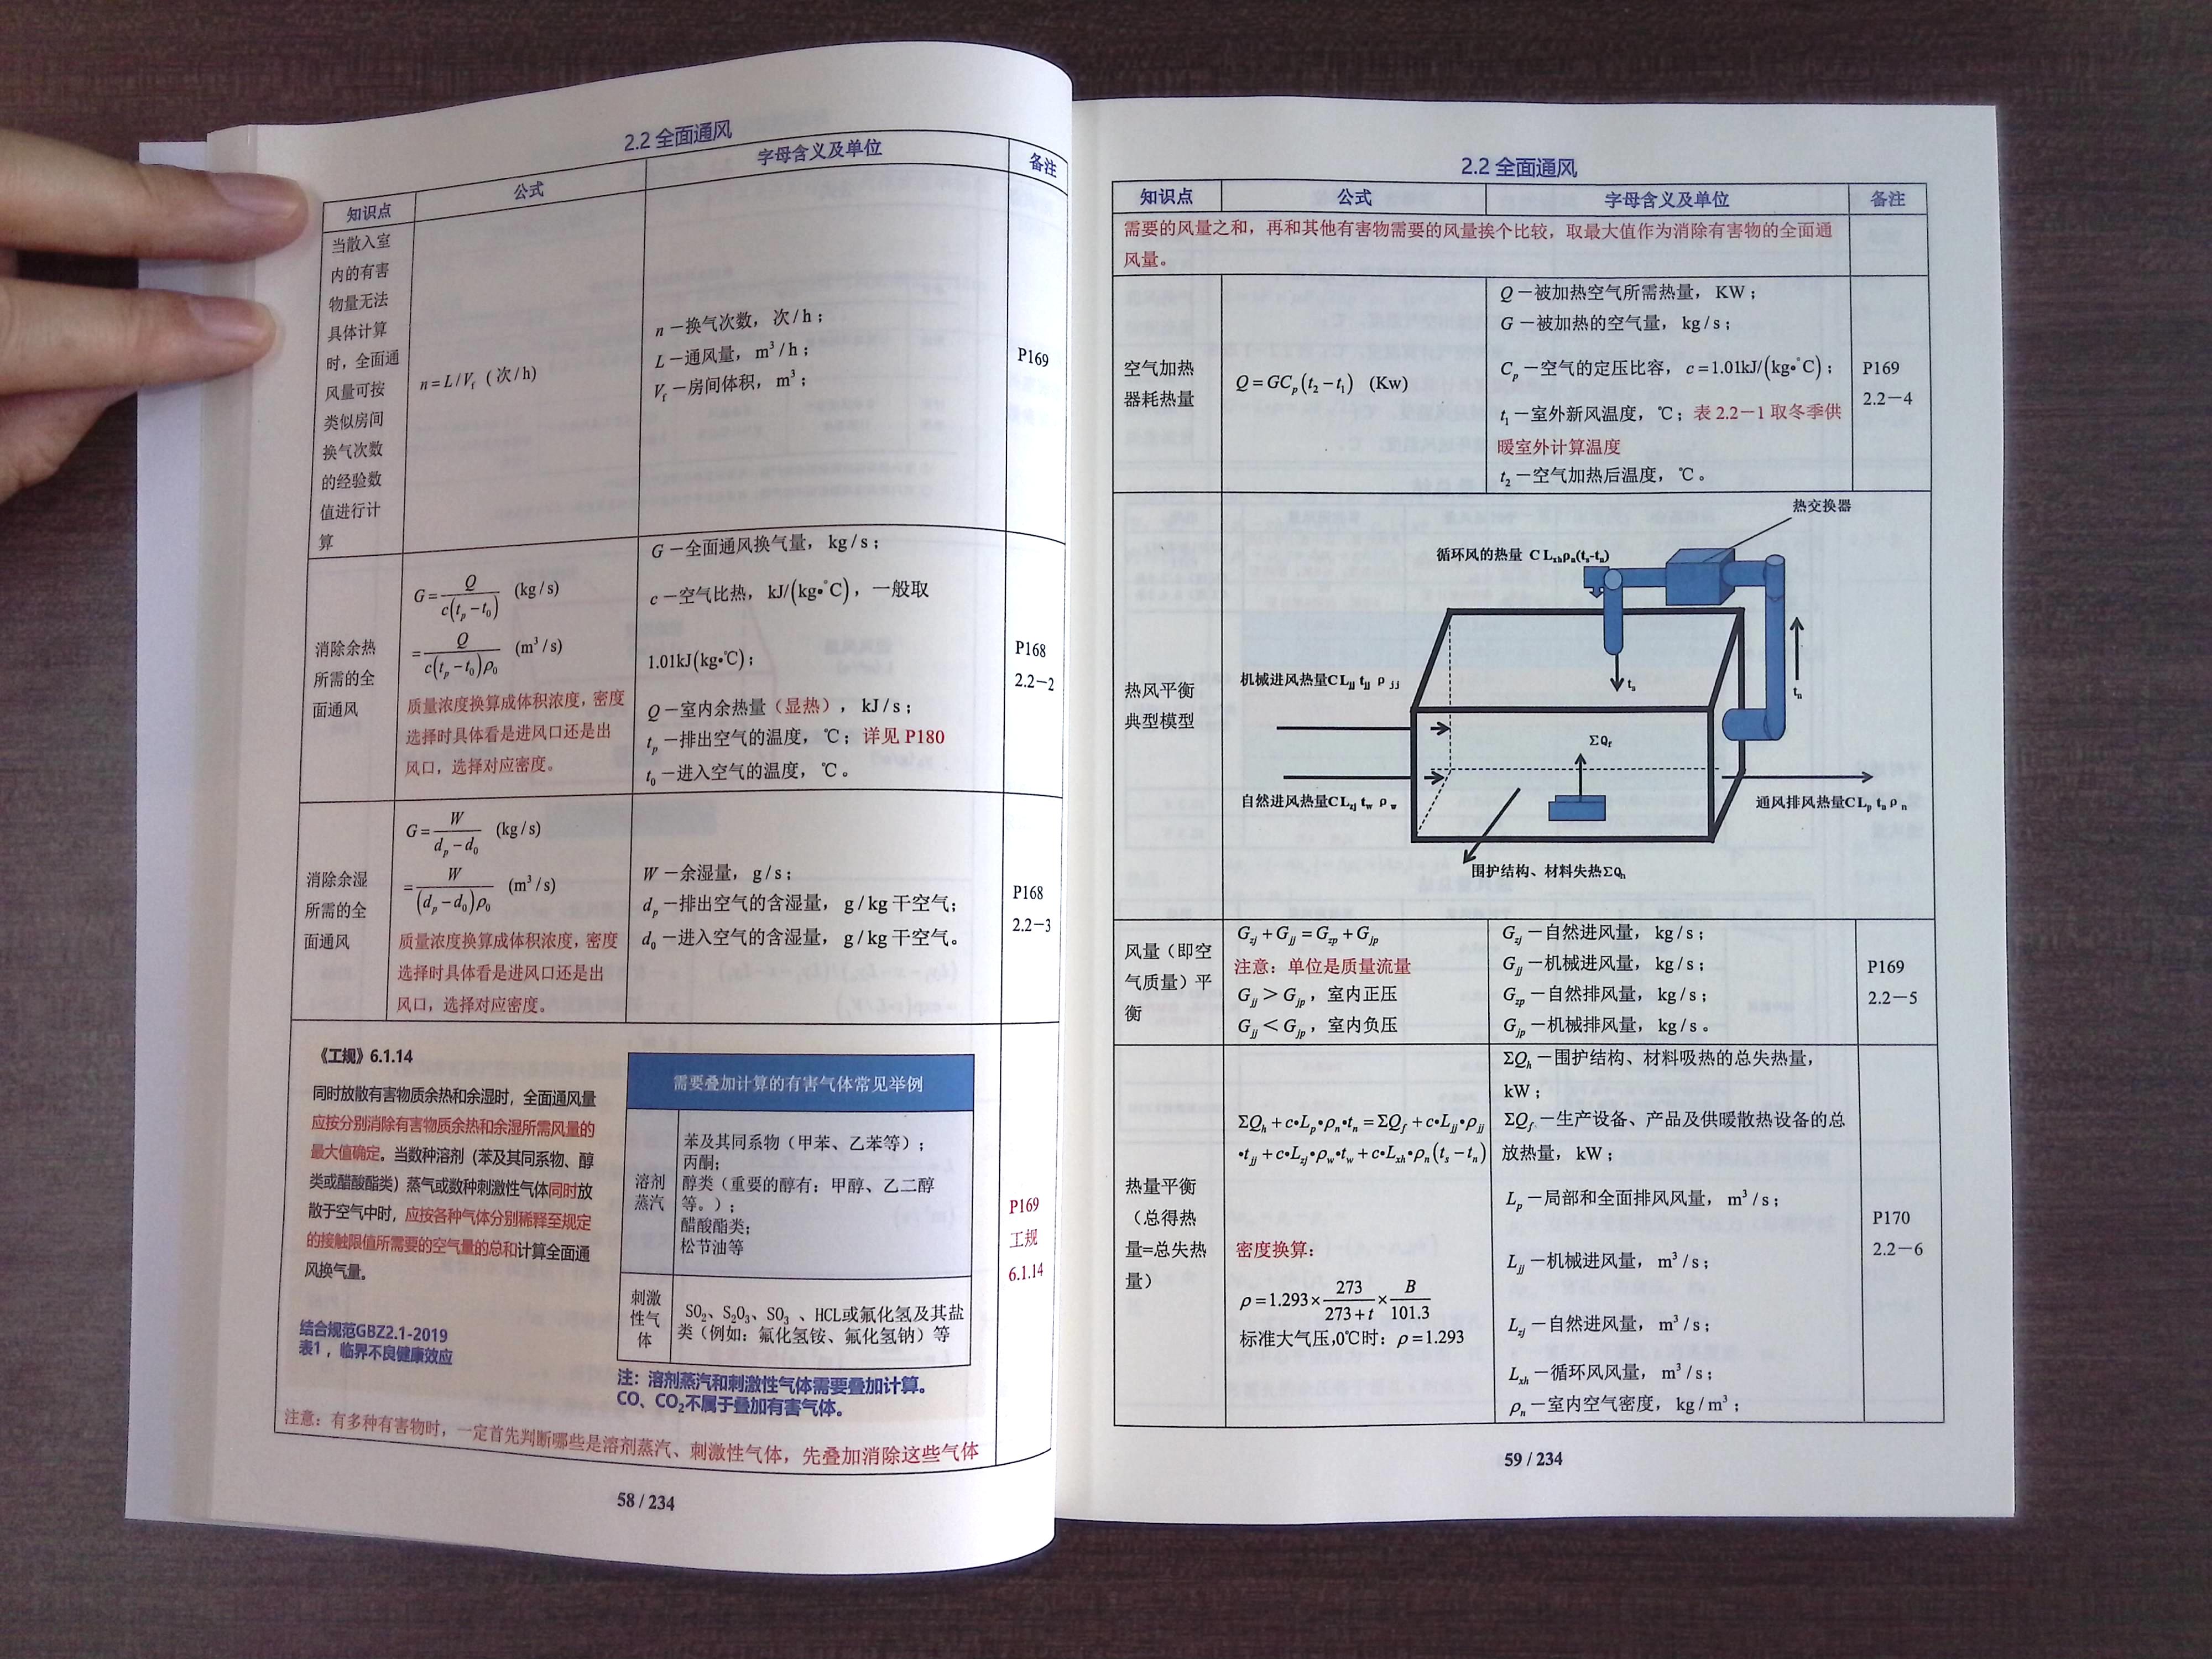 2.2 全面通风
知识点 公式 字母含义及单位 备注
当散入室
内的有害
物量无法
具体计算
时，全面通
风量可按
类似房间
换气次数
的经验数
值进行计
算
n=L/Vf（次/h)
n－换气次数，次/h；
L－通风量，m³/h；
Vf－房间体积，m³；
P169
消除余热
所需的全
面通风
G=Q/c(tp－t0) (kg/s)
=Q/c(tp－t0)ρ0 (m³/s)
质量浓度换算成体积浓度，密度
选择时具体看是进风口还是出
风口，选择对应密度。
G－全面通风换气量，kg/s；
c－空气比热，kJ/(kg•℃)，一般取
1.01kJ(kg•℃)；
Q－室内余热量（显热），kJ/s；
tp－排出空气的温度，℃；详见 P180
t0－进入空气的温度，℃。
P168
2.2－2
消除余湿
所需的全
面通风
G=W/dp－d0 (kg/s)
=W/(dp－d0)ρ0 (m³/s)
质量浓度换算成体积浓度，密度
选择时具体看是进风口还是出
风口，选择对应密度。
W－余湿量，g/s；
dp－排出空气的含湿量，g/kg 干空气；
d0－进入空气的含湿量，g/kg 干空气。
P168
2.2－3
《工规》6.1.14
同时放散有害物质余热和余湿时，全面通风量
应按分别消除有害物质余热和余湿所需风量的
最大值确定。当数种溶剂（苯及其同系物、醇
类或醋酸酯类）蒸气或数种刺激性气体同时放
散于空气中时，应按各种气体分别稀释至规定
的接触限值所需要的空气量的总和计算全面通
风换气量。
结合规范GBZ2.1-2019
表1，临界不良健康效应
需要叠加计算的有害气体常见举例
溶剂
蒸汽
苯及其同系物（甲苯、乙苯等）；
丙酮；
醇类（重要的醇有：甲醇、乙二醇
等。）；
醋酸酯类；
松节油等
刺激
性气
体
SO₂、S₂O₃、SO₃ 、HCL或氟化氢及其盐
类（例如：氟化氢铵、氟化氢钠）等
注：溶剂蒸汽和刺激性气体需要叠加计算。
CO、CO₂不属于叠加有害气体。
P169
工规
6.1.14
注意：有多种有害物时，一定首先判断哪些是溶剂蒸汽、刺激性气体，先叠加消除这些气体
58 / 234
2.2 全面通风
知识点 公式 字母含义及单位 备注
需要的风量之和，再和其他有害物需要的风量挨个比较，取最大值作为消除有害物的全面通
风量。
空气加热
器耗热量
Q=GCp(t2－t1) (Kw)
Q－被加热空气所需热量，KW；
G－被加热的空气量，kg/s；
Cp－空气的定压比容，c=1.01kJ/(kg•℃)；
t1－室外新风温度，℃；表 2.2－1 取冬季供
暖室外计算温度
t2－空气加热后温度，℃。
P169
2.2－4
热风平衡
典型模型
热交换器
循环风的热量 C Lxhρn(ts-tn)
机械进风热量CLjj tjj ρjj
ts
tn
ΣQf
自然进风热量CLzj tw ρw
通风排风热量CLp tn ρn
围护结构、材料失热ΣQh
风量（即空
气质量）平
衡
Gzj+Gjj=Gzp+Gjp
注意：单位是质量流量
Gjj＞Gjp，室内正压
Gjj＜Gjp，室内负压
Gzj－自然进风量，kg/s；
Gjj－机械进风量，kg/s；
Gzp－自然排风量，kg/s；
Gjp－机械排风量，kg/s。
P169
2.2－5
热量平衡
（总得热
量=总失热
量）
ΣQh+c•Lp•ρn•tn=ΣQf+c•Ljj•ρjj
•tjj+c•Lzj•ρw•tw+c•Lxh•ρn(ts－tn)
密度换算：
ρ=1.293×273/273+t×B/101.3
标准大气压,0℃时：ρ=1.293
ΣQh－围护结构、材料吸热的总失热量，
kW；
ΣQf－生产设备、产品及供暖散热设备的总
放热量，kW；
Lp－局部和全面排风风量，m³/s；
Ljj－机械进风量，m³/s；
Lzj－自然进风量，m³/s；
Lxh－循环风风量，m³/s；
ρn－室内空气密度，kg/m³；
P170
2.2－6
59 / 234